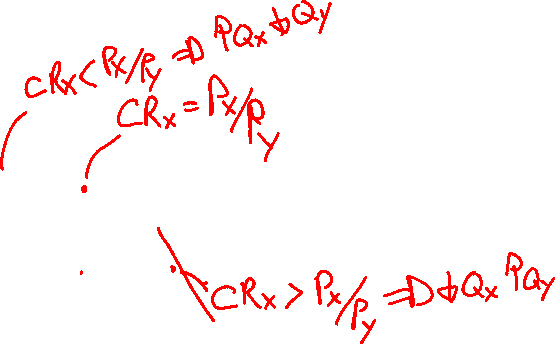 CRx < Px/Py ⇒ ↑Qx ↓Qy
CRx = Px/Py
CRx > Px/Py ⇒ ↓Qx ↑Qy